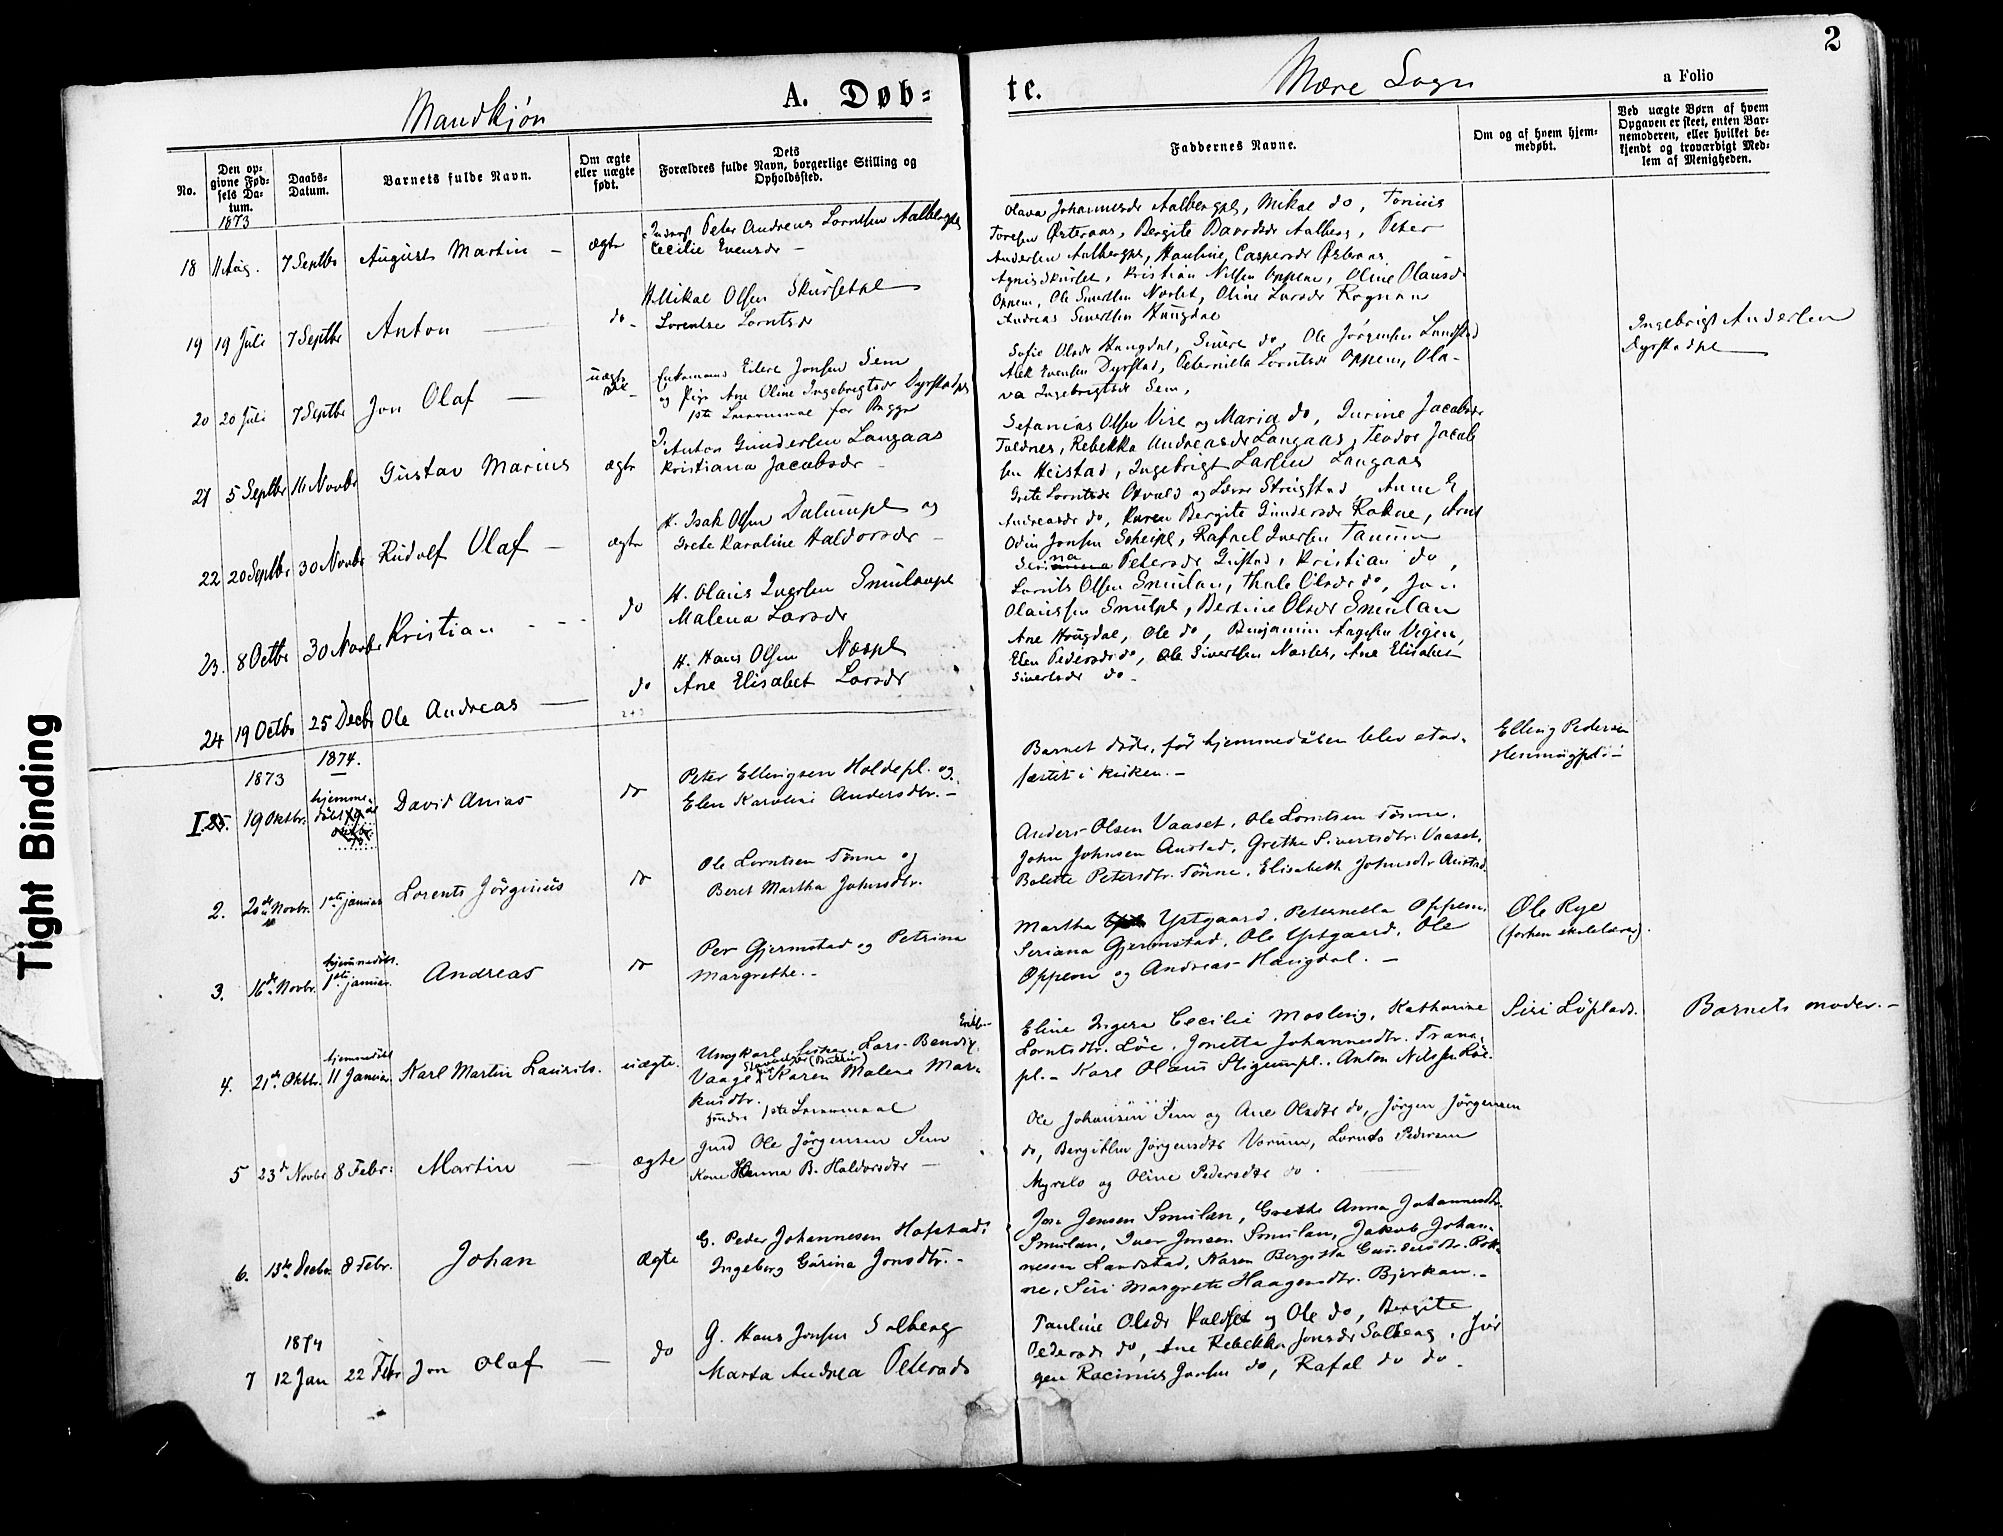 2
Mandkjøn
A. Døb=
te.
Mære Sogn
a Folio
No.
Den op-
givne Fød-
sels Da-
tum.
Daabs-
Datum.
Barnets fulde Navn.
Om ægte
eller uægte
født.
Dets
Forældres fulde Navn, borgerlige Stilling og
Opholdssted.
Faddernes Navne.
Om og af hvem hjem-
medøbt.
Ved uægte Børn af hvem
Opgaven er skeet, enten Bar-
nemoderen, eller hvilket be-
kjendt og troværdigt Med-
lem af Menigheden.
1873
18 11 Aug. 7 Septbr August Martin – ægte
Peter Andreas Lorntsen Aalbergpl
Cecilie Evensdr –
Olava Johannesdr Aalbergpl, Mikal do, Tonius
Toresen Østeraas, Bergite Baardsdr Aalberg, Peter
Andersen Aalbergpl, Pauline Caspersdr Østeraas
19 19 Juli 7 Septbr Anton — do –
H. Mikal Olsen Skursetpl
Lorentse Lorntsdr
Agnis Skurset, Kristian Nilsen Oppem, Oline Olausdr
Oppem, Ole Sivertsen Norset, Oline Larsdr Rognan
Andreas Sivertsen Haugdal
20 20 Juli 7 Septbr Jon Olaf — uægte
Enkemand Eilert Jonsen Sem
og Pige Ane Oline Ingebrigtsdr Dyrstadpl
1ste Leiermaal for Begge
Sofie Olsdr Haugdal, Sivert do, Ole Jørgensen Lundstad
Alek Evensen Dyrstad, Peternilla Lorntsdr Oppem, Ola-
va Ingebrigtsdr Sem,
Ingebrigt Andersen
Dyrstadpl —
21 5 Septbr 16 Novbr Gustav Marius ægte
Anton Gundersen Langaas
Kristiana Jacobsdr –
Sefanias Olsen Vise og Maria do, Gurine Jacobsdr
Tuldnes, Rebekka Andreasdr Langaas, Teodor Jacob
sen Heistad, Ingebrigt Larsen Langaas
22 20 Septbr 30 Novbr Rudolf Olaf – ægte
H. Isak Olsen Dalumpl og
Grete Karoline Haldorsdr –
Andreasdr do, Karen Bergite Gundersdr Rokne,
Odin Jonsen Scheipl, Rafael Iversen Tanum
23. 8 Octbr 30 Novbr Kristian - - - do
H. Olaus Iversen Smulanpl
Malena Larsdr
Petersdr Gustad, Kristian do,
Lornts Olsen Smulan, Thale Olsdr do, Jon
Olaussen Smulpl, Bertine Olsdr Smulan
24 19 Octbr 25 Decbr Ole Andreas — do
H. Hans Olsen Næspl
Ane Elisabet Larsdr
Ane Haugdal, Ole do, Benjamin Aagesen Vegen,
Elen Pedersdr do, Ole Sivertsen Næsset, Ane Elisabet
Sivertsdr do –
1873 1874.
I. 25. 19 Oktbr. hjemme-
David Anias do
Peter Ellingsen Holdepl. og
Elen Karoline Andersdtr. –
Barnet døde, før hjemmedåben blev stad-
fæstet i kirken. –
Elling Pedersen
2. 20de Novbr. 1ste januar Lorents Jörginus do
Ole Lorntsen Tønne og
Beret Martha Johnsdtr.
Anders Olsen Vaaset, Ole Lorntsen Tønne,
John Johnsen Austad, Grethe Sivertsdtr. Vaaset,
Bolette Petersdtr. Tønne, Elisabeth Johnsdtr Austad.
3. 16de Novbr. hjemmedöbt.
1ste januar. Andreas do
Per Gjermstad og Petrina
Margrethe. –
Martha Ystgaard, Peternella Oppem,
Seriana Gjermstad, Ole Ystgaard, Ole
Oppem og Andreas Haugdal. –
Ole Rye
(forhen skolelærer).
4. 21de Oktbr. hjemmedöbt
11 Januar. Karl Martin Laurits. uægte.
Ungkarl Lars Bendix
Vaage Karen Malene Mar-
kusdtr.
1ste Leiermaal
Eline Ingera Cecilie Mosling, Katharine
Lorntsdtr. Löe, Jonetta Johannesdtr. Trana-
pl. – Karl Olaus Stigumpl., Anton Nilssen Löe-
pl.
Siri Löplads.
Barnets moder. –
5 23de Novbr 8 Febr: Martin — ægte
Grd Ole Jörgensen Sem
Kone Hanna B. Haldorsdtr –
Ole Johansen Sem og Ane Olsdtr do, Jörgen Jörgensen
do, Bergitha Jørgensdtr Vorum, Lornts Pedersen
Myrslo og Oline Pedersdtr do.
6. 13de Decbr. 8 Febr. Johan Ægte
G. Peder Johannesen Hofstad.
Ingeborg Gurina Jonsdtr. –
Jon Jensen Smulan, Grethe Anna Johannesdtr.
Smulan, Iver Jonsen Smulan, Jakob Johan-
nesen Landstad, Karen Bergitta Gundersdtr. Rok-
ne, Siri Margrete Haagensdtr. Bjerkan. –
1874
7 12 Jan 22 Febr Jon Olaf — do
G. Hans Jonsen Solberg
Marta Andrea Petersdr
Pauline Olsdr Valdset og Ole do, Bergite
Pedersdr do, Ane Rebekka Jonsdr Solberg, Jør
gen Racinius Jonsen do, Rafal do do –
Tight Binding